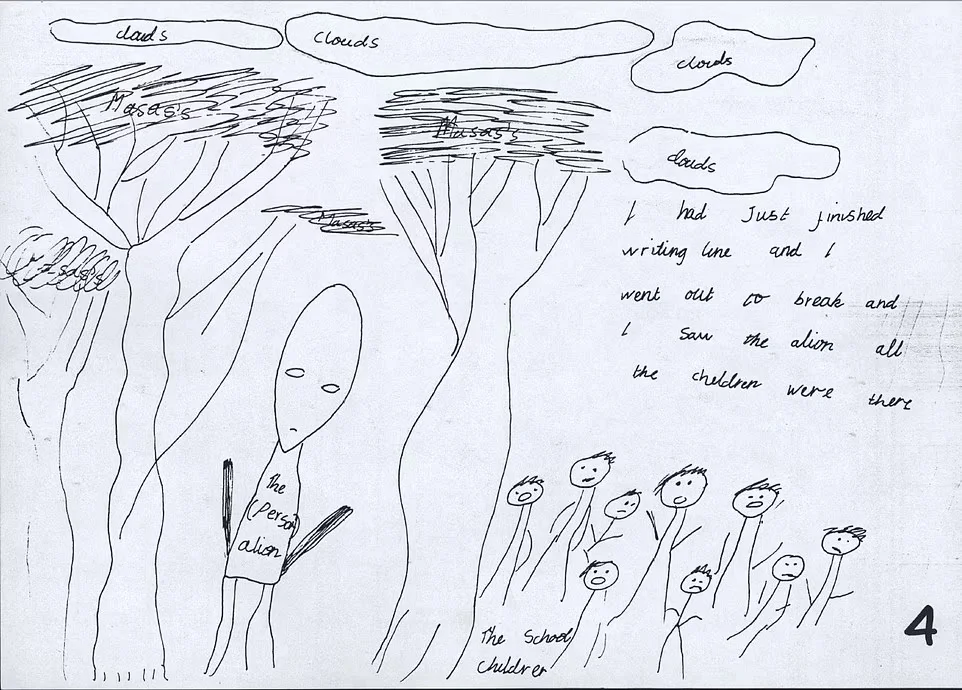 clouds
clouds
clouds
Masas's
Masas's
clouds
Masas's
I had Just finished
writing line and I
went out to break and
I saw the alion all
the children were there
the
(Person)
alion
The School
Children
4